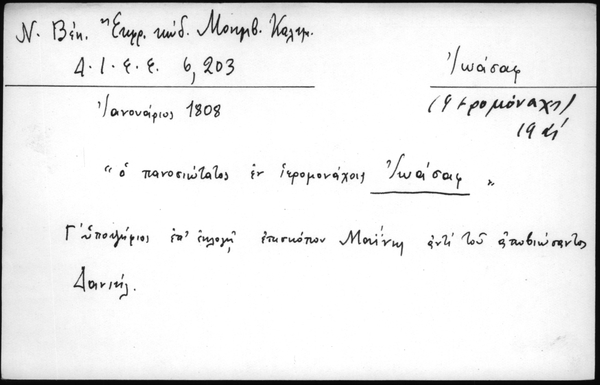 Ν. Βέη. "Εκφρ. κώδ. Μονεμβ. Καλαμ.
Δ.Ι.Ε.Ε. 6, 203
Ἰωάσαφ
(Ἱερομόναχος)
19 αἰ
Ἰανουάριος 1808
"ὁ πανοσιώτατος ἐν ἱερομονάχοις Ἰωάσαφ"
Γ' ὑποψήφιος ἐπ' ἐκλογῇ ἐπισκόπου Μαΐνης ἀντὶ τοῦ ἀποβιώσαντος
Δανιήλ.